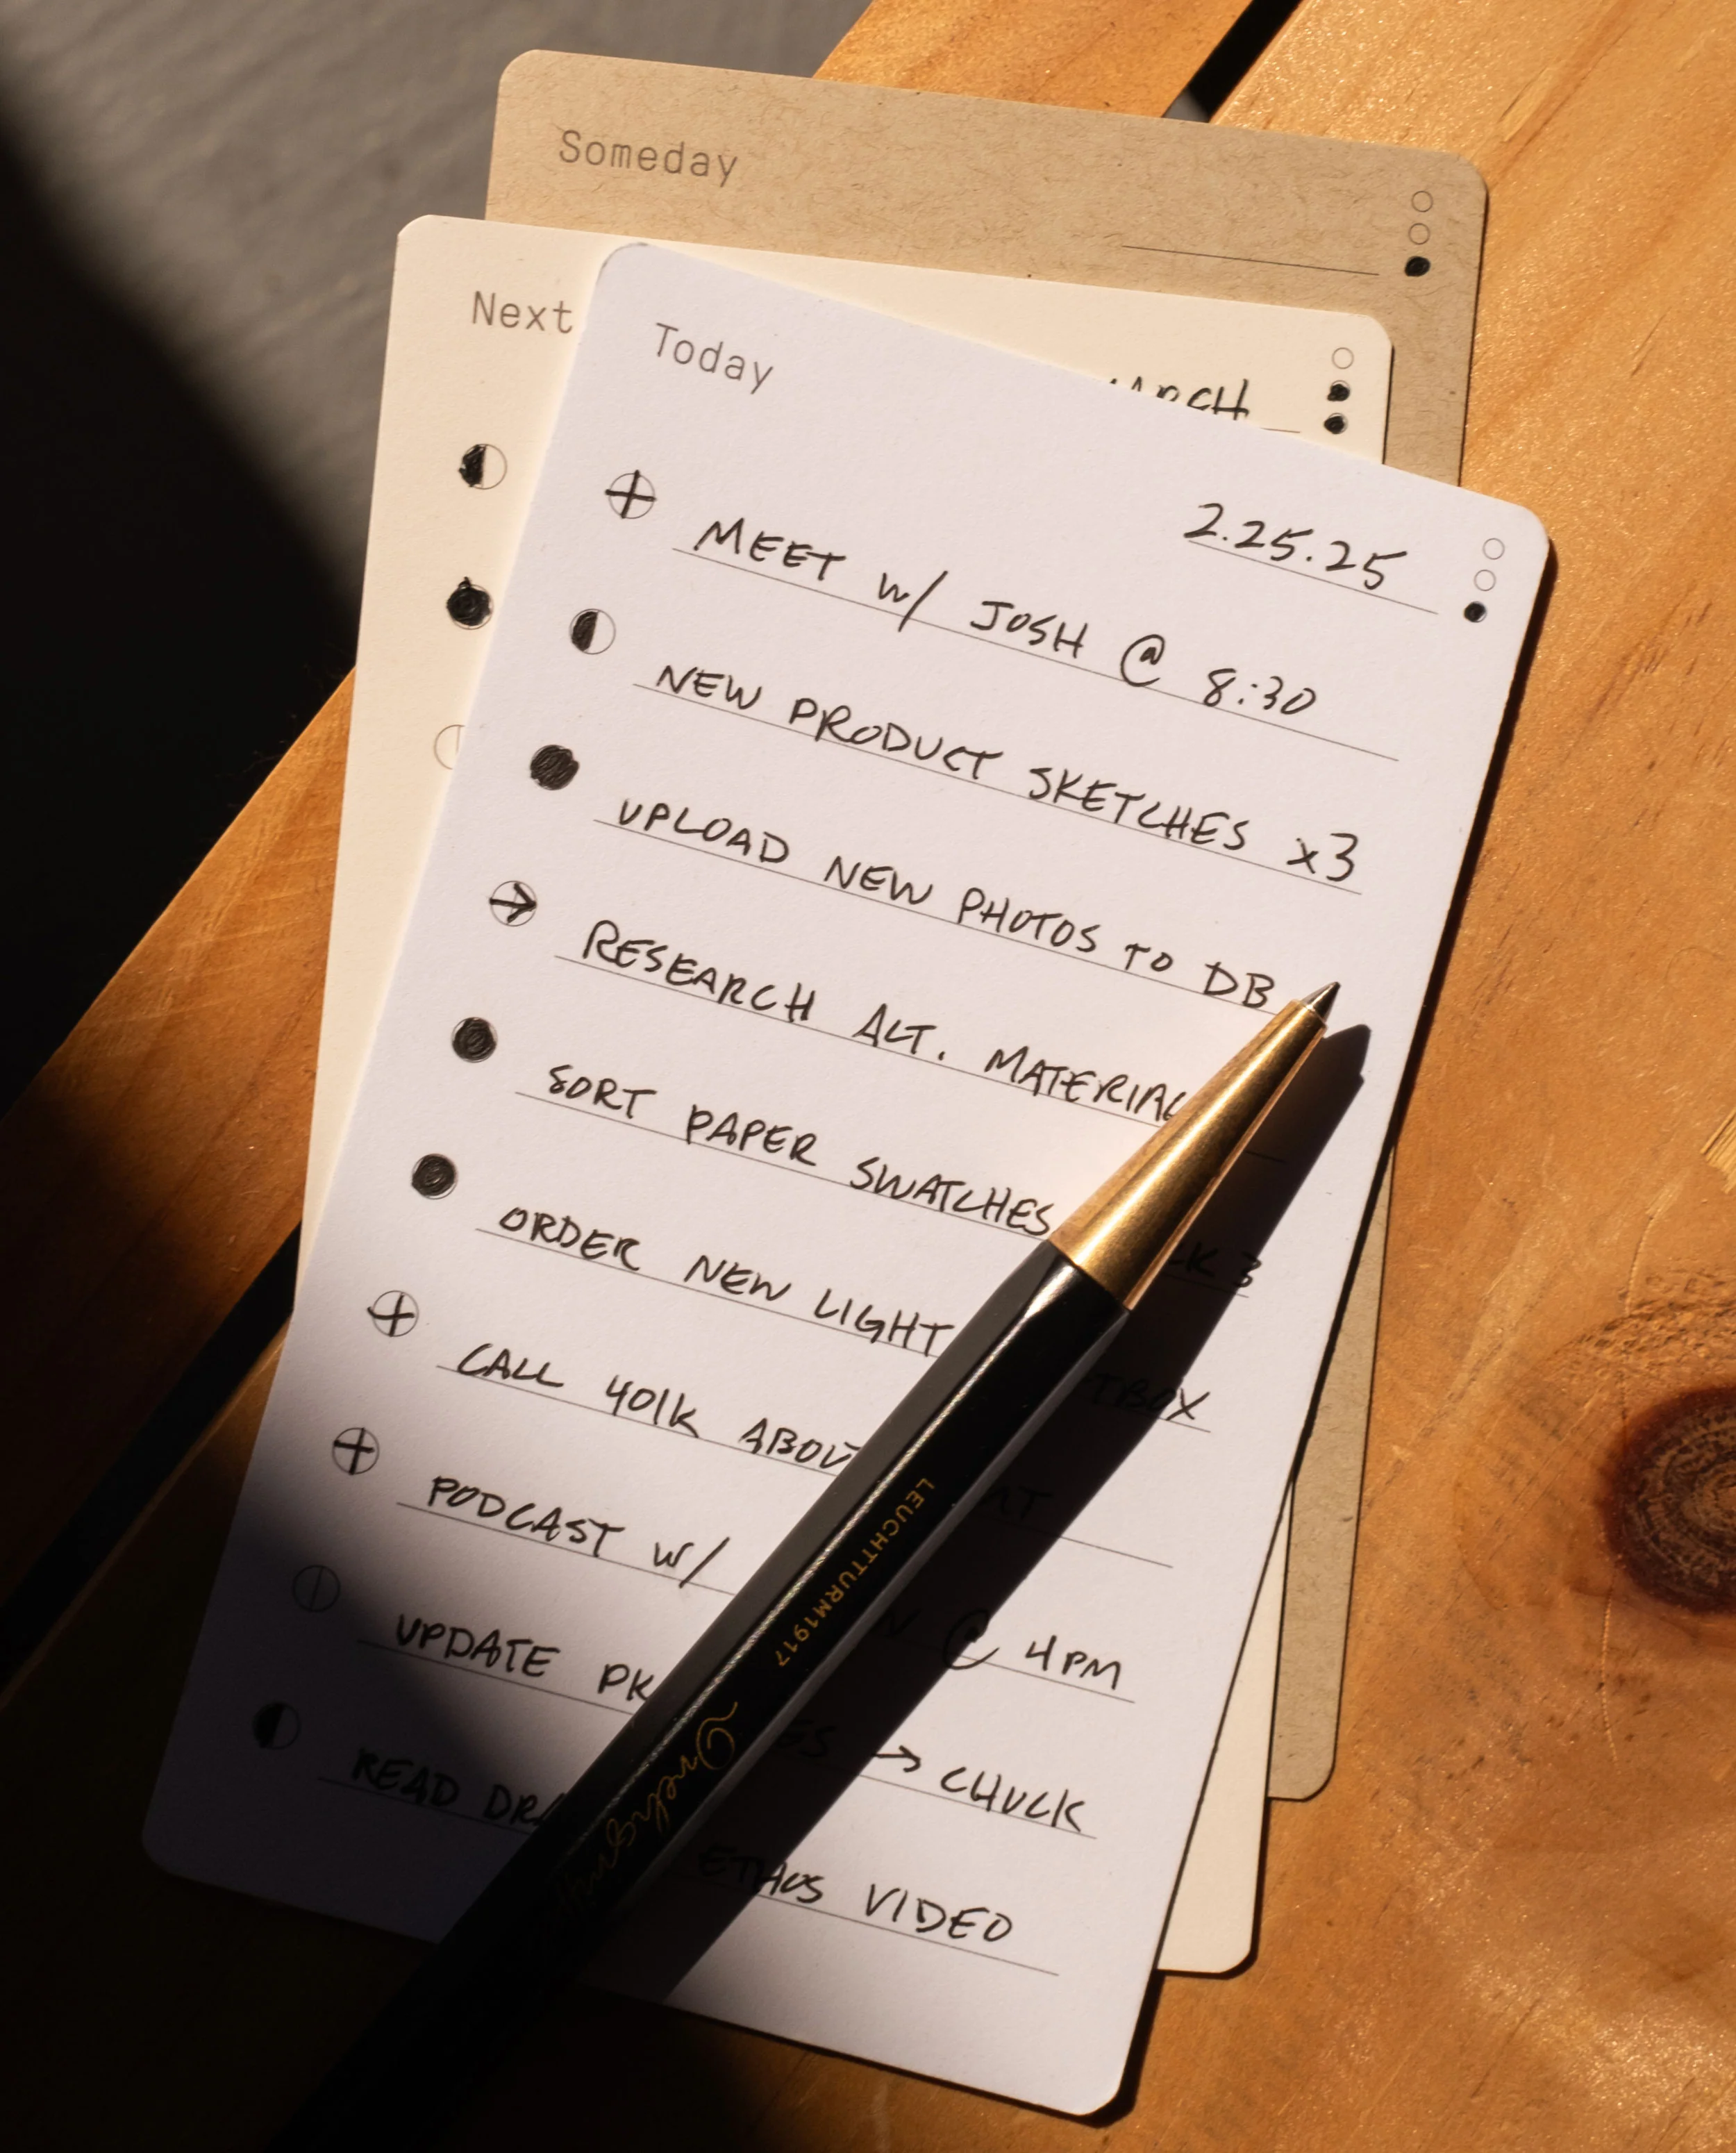 Someday
Next
Today
2.25.25
MEET w/ JOSH @ 8:30
NEW PRODUCT SKETCHES x3
UPLOAD NEW PHOTOS TO DB
RESEARCH ALT.
SORT PAPER SWATCHES
ORDER NEW LIGHT
CALL 401K
PODCAST w/ @ 4PM
UPDATE → CHUCK
READ ETHOS VIDEO
LEUCHTTURM1917